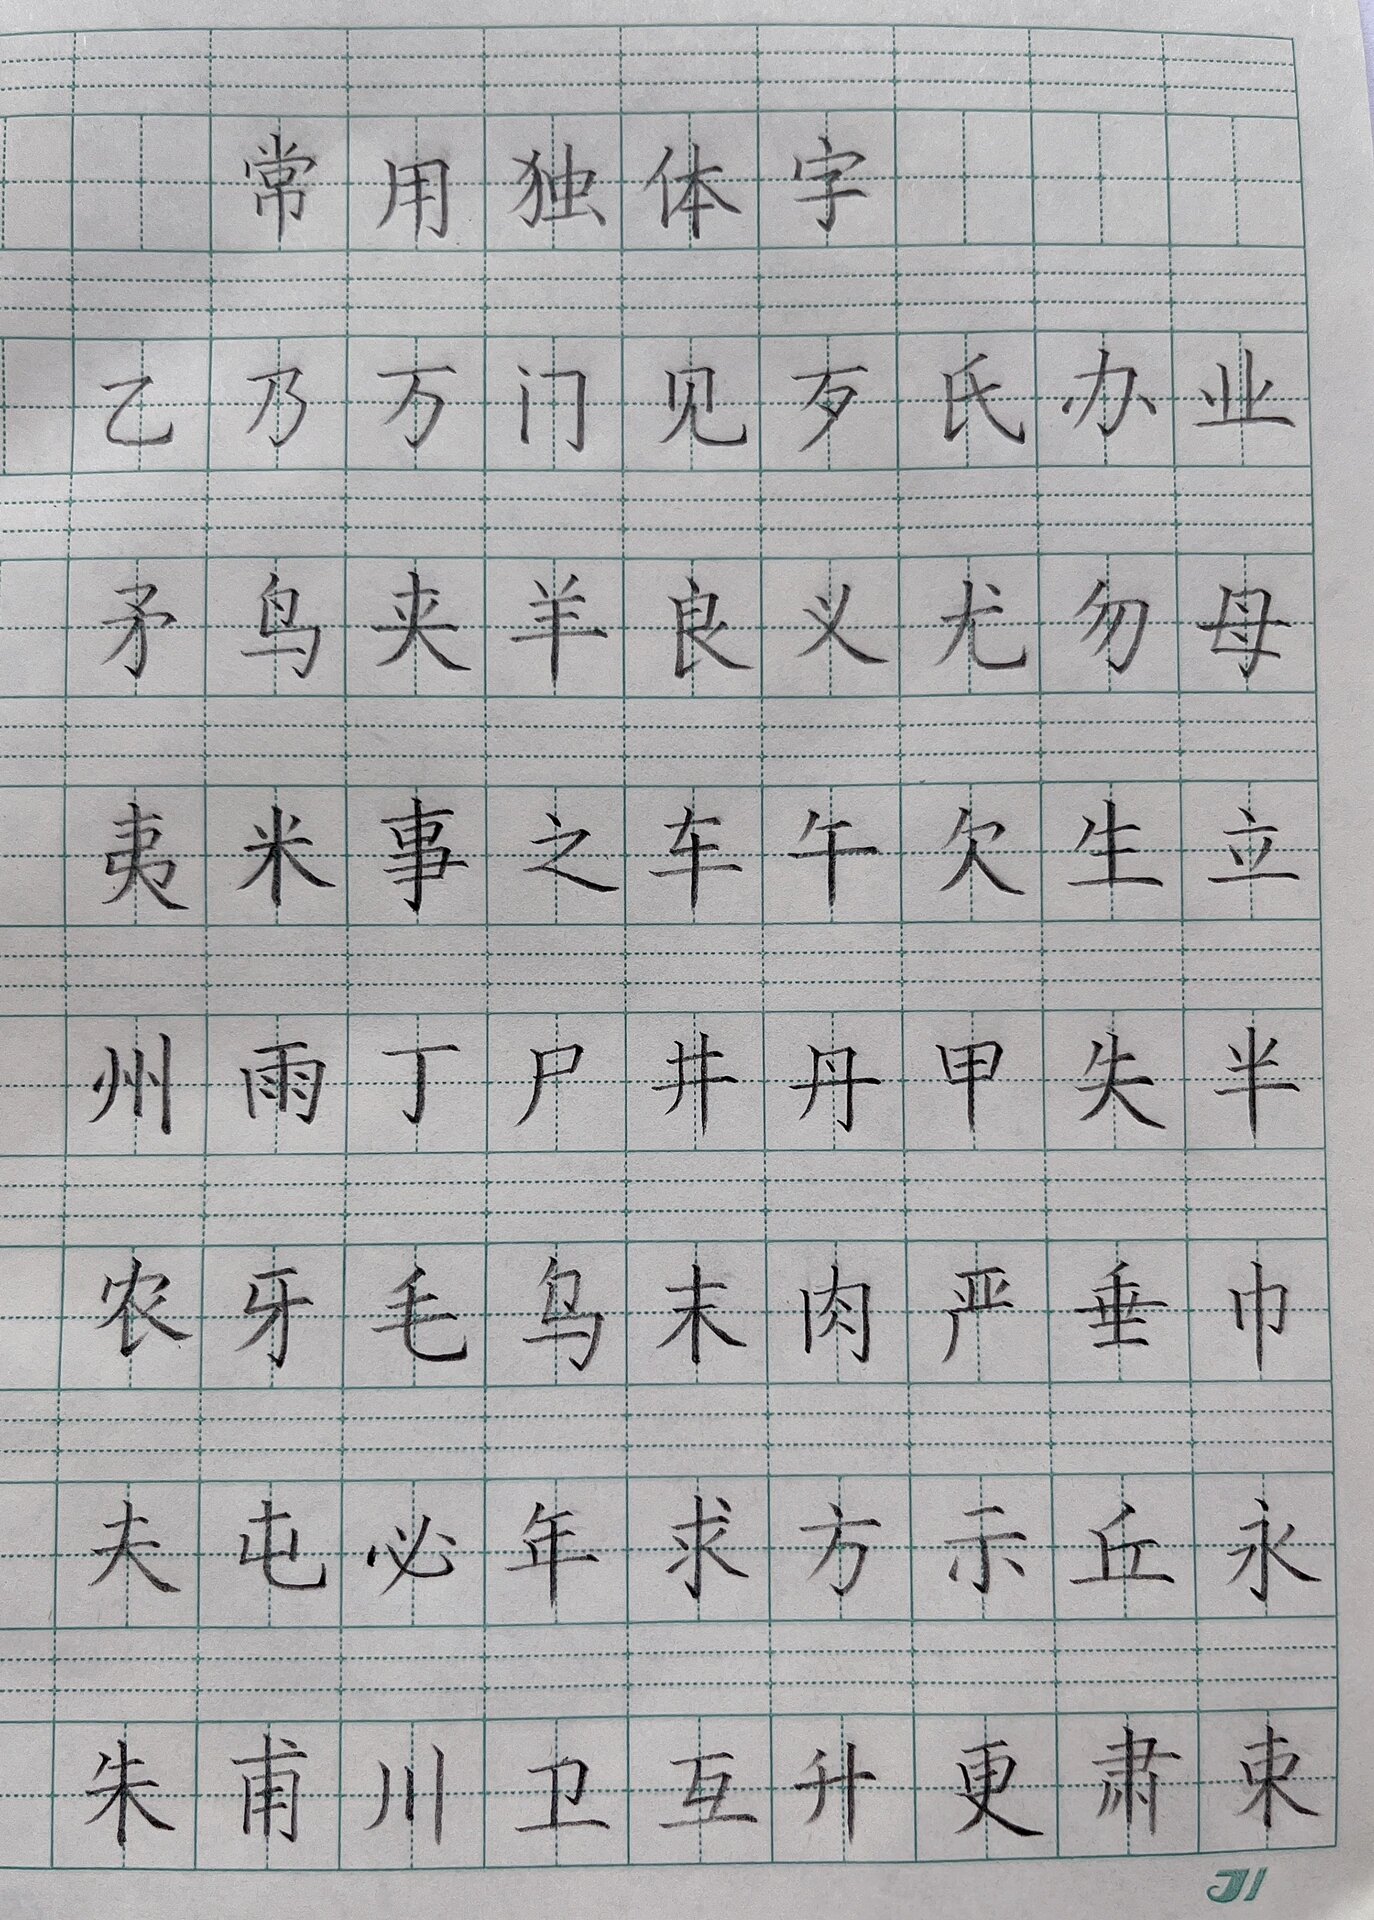 常用独体字
乙乃万门见歹氏办业
矛鸟夹羊良义尤勿母
夷米事之车午欠生立
州雨丁尸井丹甲失半
农牙毛乌末肉严垂巾
夫屯必年求方示丘永
朱甫川卫互升更肃束